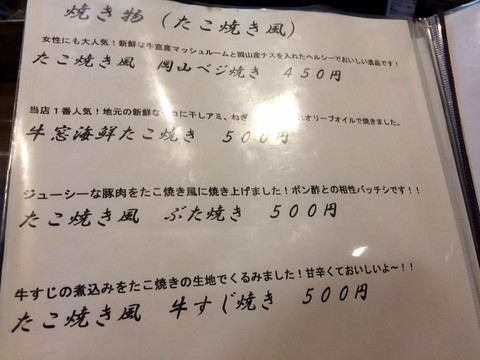 焼き物(たこ焼き風)
女性にも大人気!新鮮な牛窓産マッシュルームと岡山産ナスを入れたヘルシーでおいしい逸品です!
たこ焼き風 岡山ベジ焼き 450円
当店1番人気!地元の新鮮な コに干しアミ、ねぎ れオリーブオイルで焼きました。
牛窓海鮮たこ焼き 500円
ジューシーな豚肉をたこ焼き風に焼き上げました!ポン酢との相性バッチシです!!
たこ焼き風 ぶた焼き 500円
牛すじの煮込みをたこ焼きの生地でくるみました!甘辛くておいしいよ~!!
たこ焼き風 牛すじ焼き 500円